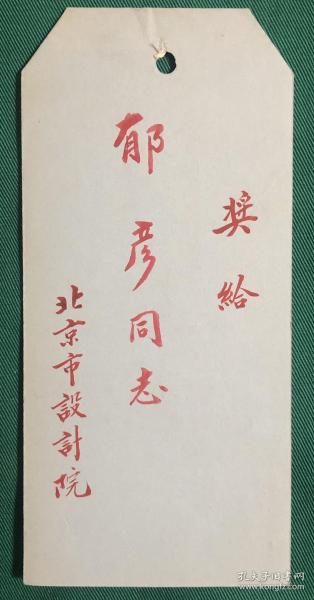 奖给
郁彦同志
北京市設計院
孔夫子旧书网